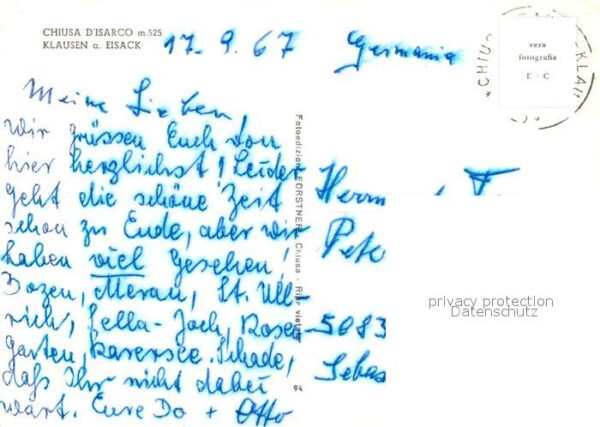 CHIUSA D'ISARCO m.525
KLAUSEN a. EISACK
17. 9. 67
Germania
vera
fotografia
E · C
Meine Lieben,
wir grüssen Euch von
hier herzlichst! Leider
geht die schöne Zeit
schon zu Ende, aber wir
haben viel gesehen!
Bozen, Meran, St. Ull-
rich, Sella-Joch, Rosen-
garten, Karersee. Schade,
daß Ihr nicht dabei
wart. Eure Do + Otto
Fotoedizioni FORSTNER - Chiusa - Ripr vietata
94
Herrn , F.
Pete
5083
Sebas
privacy protection
Datenschutz